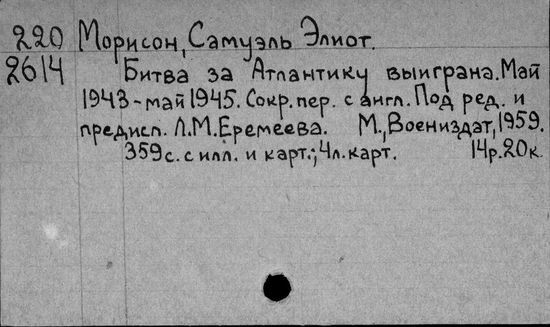 220 Морисон, Самуэль Элиот.
2614 Битва за Атлантику выиграна. Май
1943-май 1945. Сокр. пер. с англ. Под ред. и
предисл. Л.М.Еремеева. М., Воениздат, 1959.
359 с. с илл. и карт.; 4 л. карт. 14 р. 20 к.